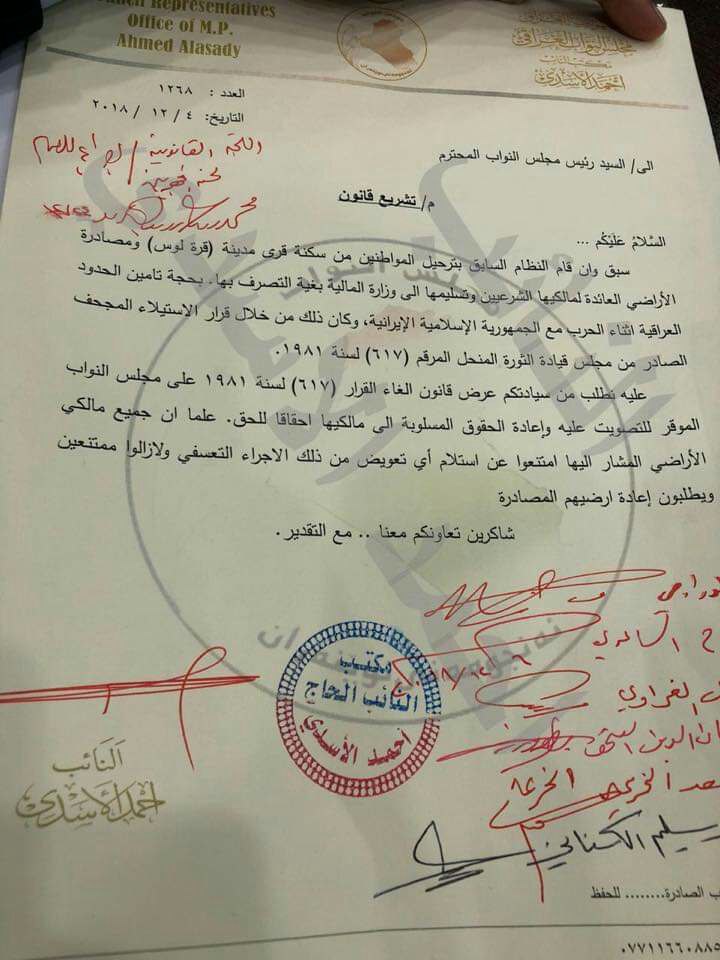 Representatives
Office of M.P.
Ahmed Alasady
مجلس النواب العراقي
مكتب النائب
احمد الأسدي
العدد : ١٢٦٨
التاريخ: ٤ / ١٢ / ٢٠١٨
اللجنة القانونية /
الى/ السيد رئيس مجلس النواب المحترم
م/ تشريع قانون
السَّلامُ عَلَيْكُم ...
سبق وان قام النظام السابق بترحيل المواطنين من سكنة قرى مدينة (قرة لوس) ومصادرة
الأراضي العائدة لمالكيها الشرعيين وتسليمها الى وزارة المالية بغية التصرف بها. بحجة تامين الحدود
العراقية اثناء الحرب مع الجمهورية الإسلامية الإيرانية، وكان ذلك من خلال قرار الاستيلاء المجحف
الصادر من مجلس قيادة الثورة المنحل المرقم (٦١٧) لسنة ١٩٨١.
عليه نطلب من سيادتكم عرض قانون الغاء القرار (٦١٧) لسنة ١٩٨١ على مجلس النواب
الموقر للتصويت عليه وإعادة الحقوق المسلوبة الى مالكيها احقاقا للحق. علما ان جميع مالكي
الأراضي المشار اليها امتنعوا عن استلام أي تعويض من ذلك الاجراء التعسفي ولازالوا ممتنعين
ويطلبون إعادة ارضيهم المصادرة
شاكرين تعاونكم معنا .. مع التقدير.
مكتب
النائب الحاج
احمد الأسدي
النائب
احمد الأسدي
الغراوي
سليم الكناني
الصادرة........ للحفظ
٠٧٧١١٦٦٠٨٨٥